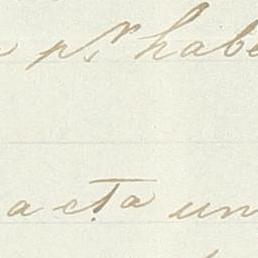 pr. habe
acta un